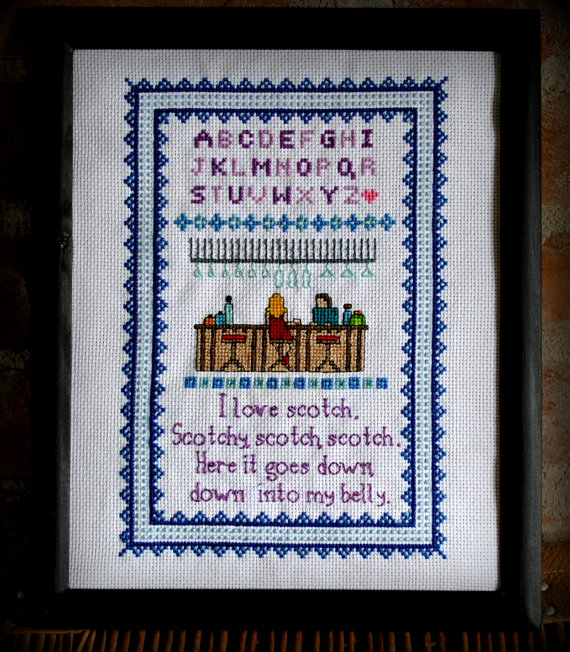 ABCDEFGHI
JKLMNOPQR
STUVWXYZ
I love scotch.
Scotchy, scotch, scotch.
Here it goes down,
down into my belly.